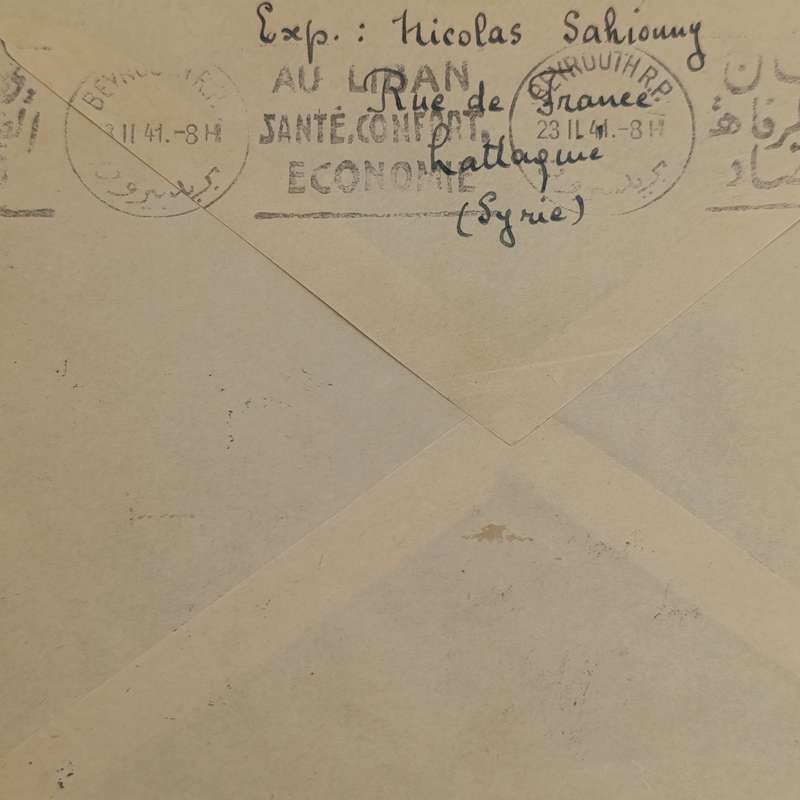 Exp. : Nicolas Sahiouny
Rue de France
Lattaquié
(Syrie)
BEYROUTH R.P.
23 II 41.-8 H
بريد بيروت
AU LIBAN
SANTÉ, CONFORT,
ECONOMIE
BEYROUTH R.P.
23 II 41.-8 H
بريد بيروت